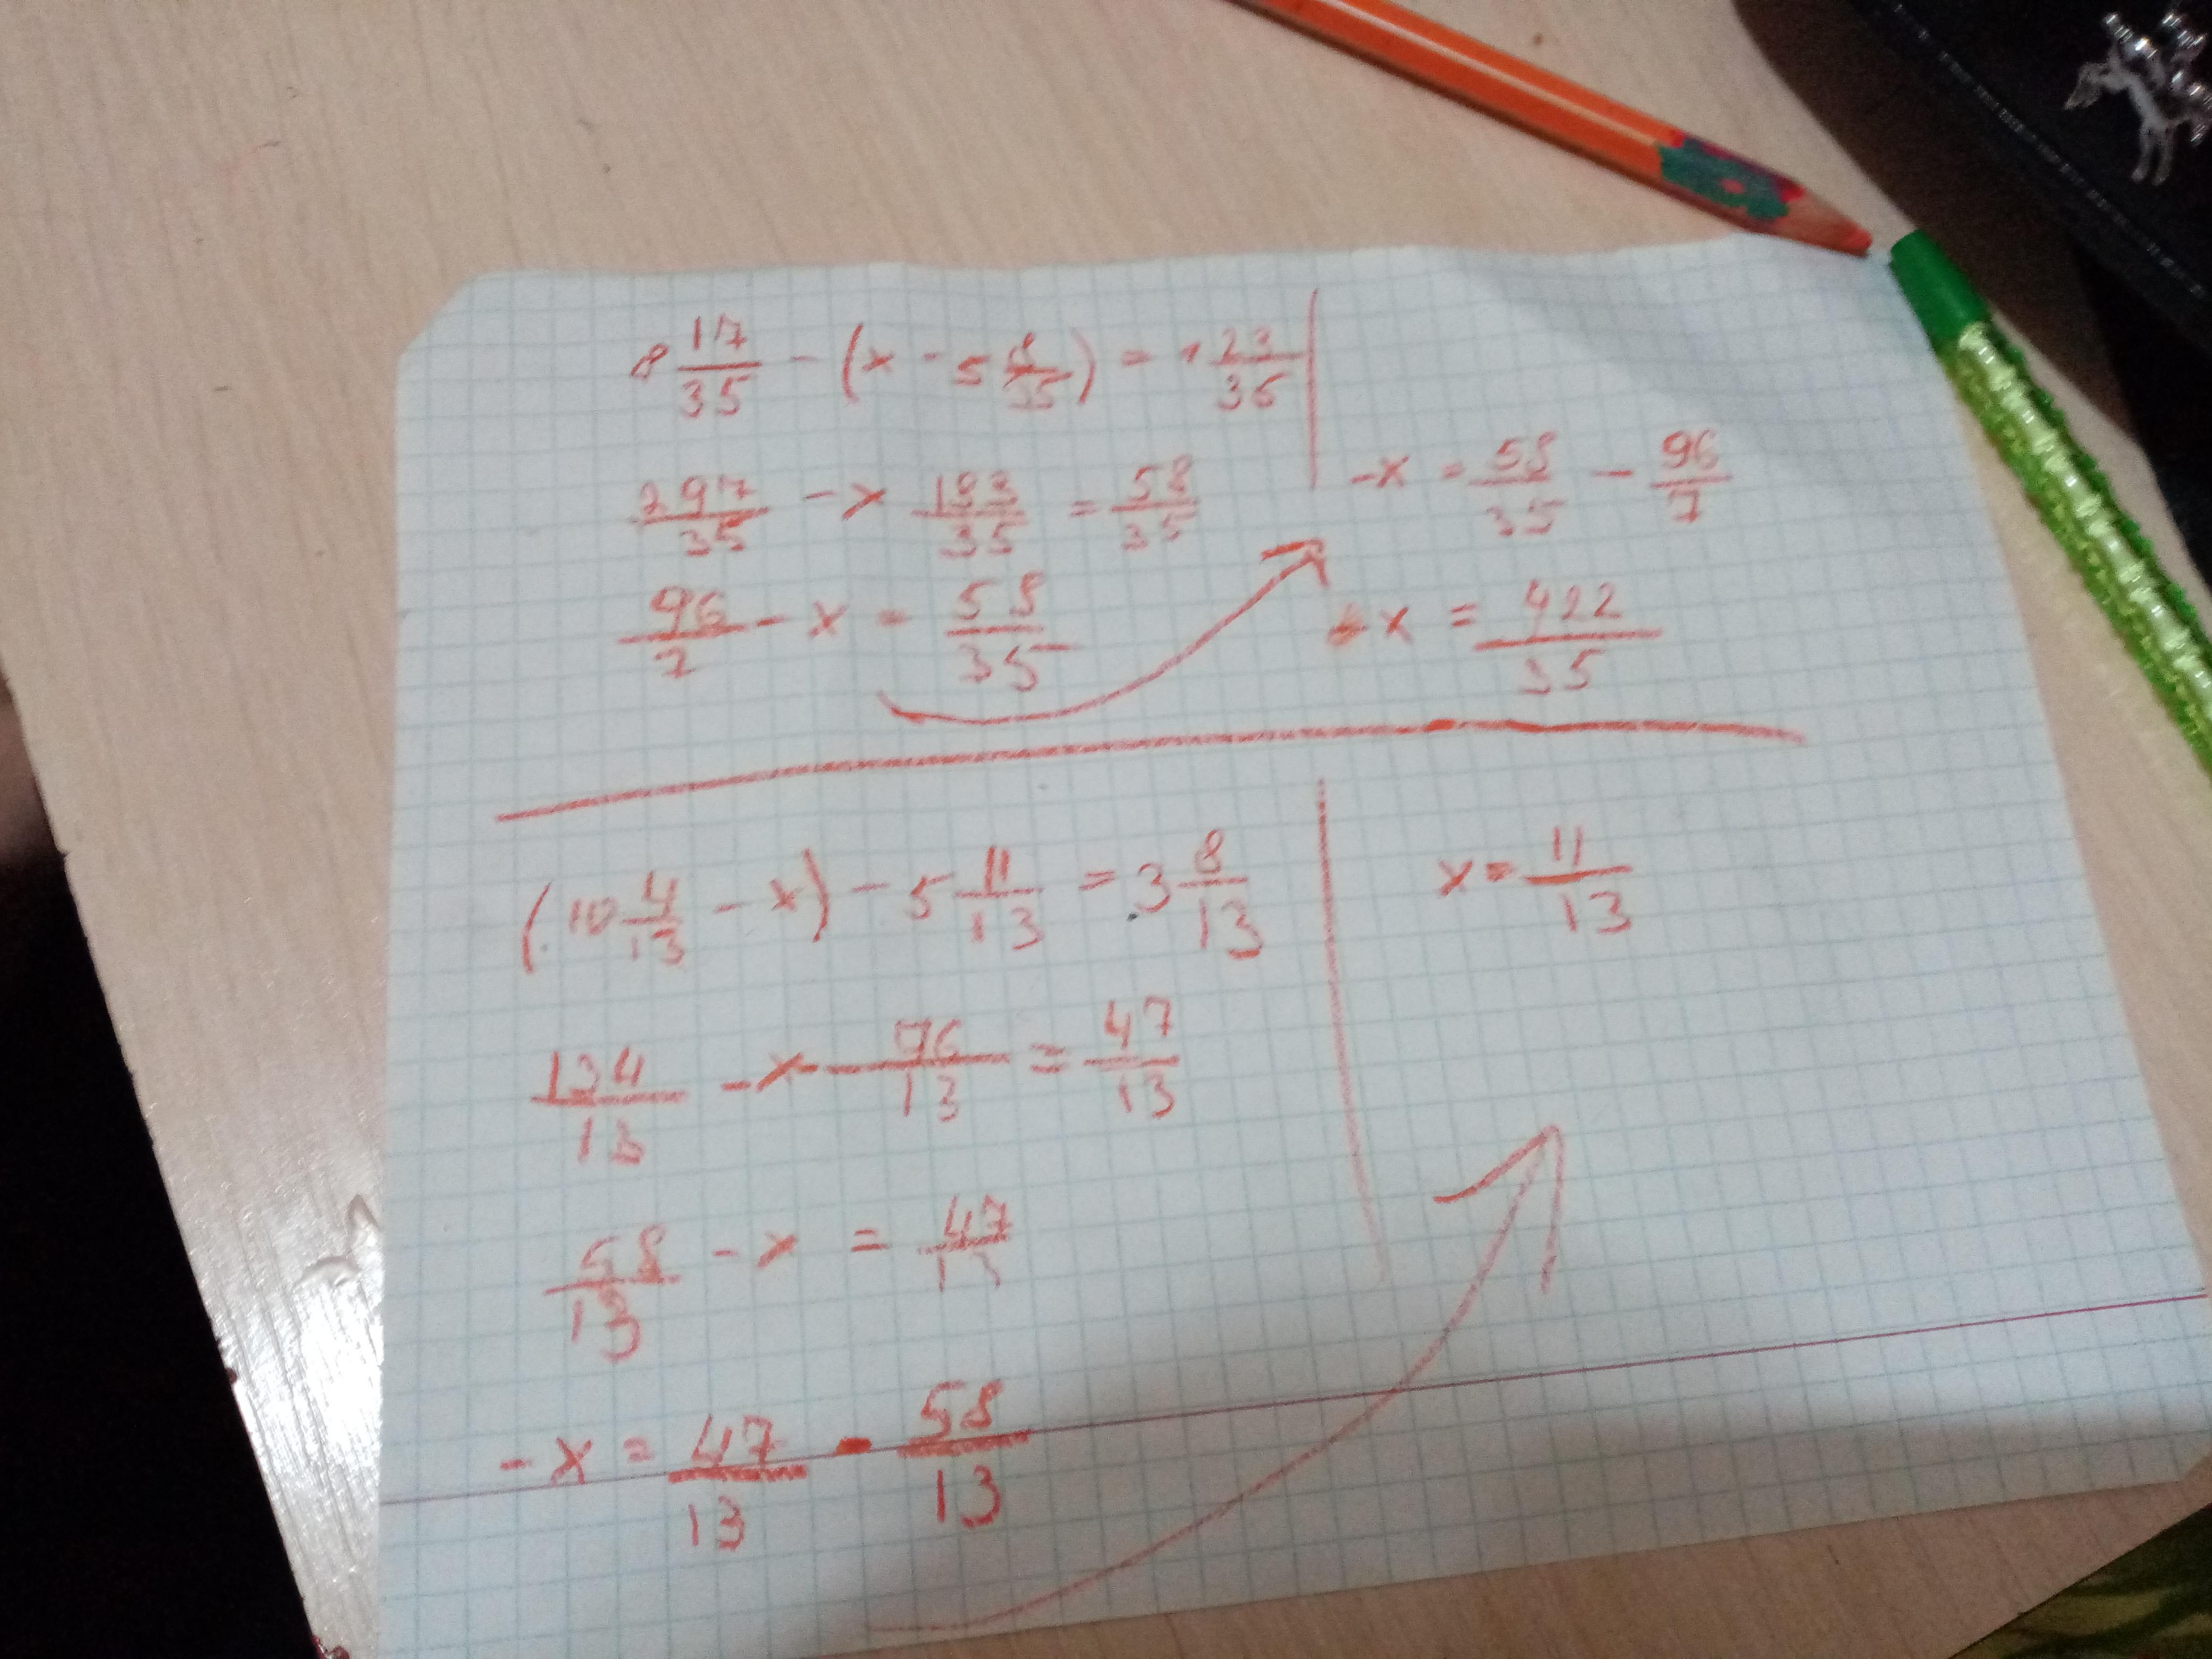 8 17/35 - (x - 5 8/35) = 1 23/35
297/35 - x 183/35 = 58/35
96/7 - x = 58/35
-x = 58/35 - 96/7
x = 422/35
(10 4/13 - x) - 5 11/13 = 3 8/13
134/13 - x - 76/13 = 47/13
58/13 - x = 47/13
-x = 47/13 - 58/13
x = 11/13